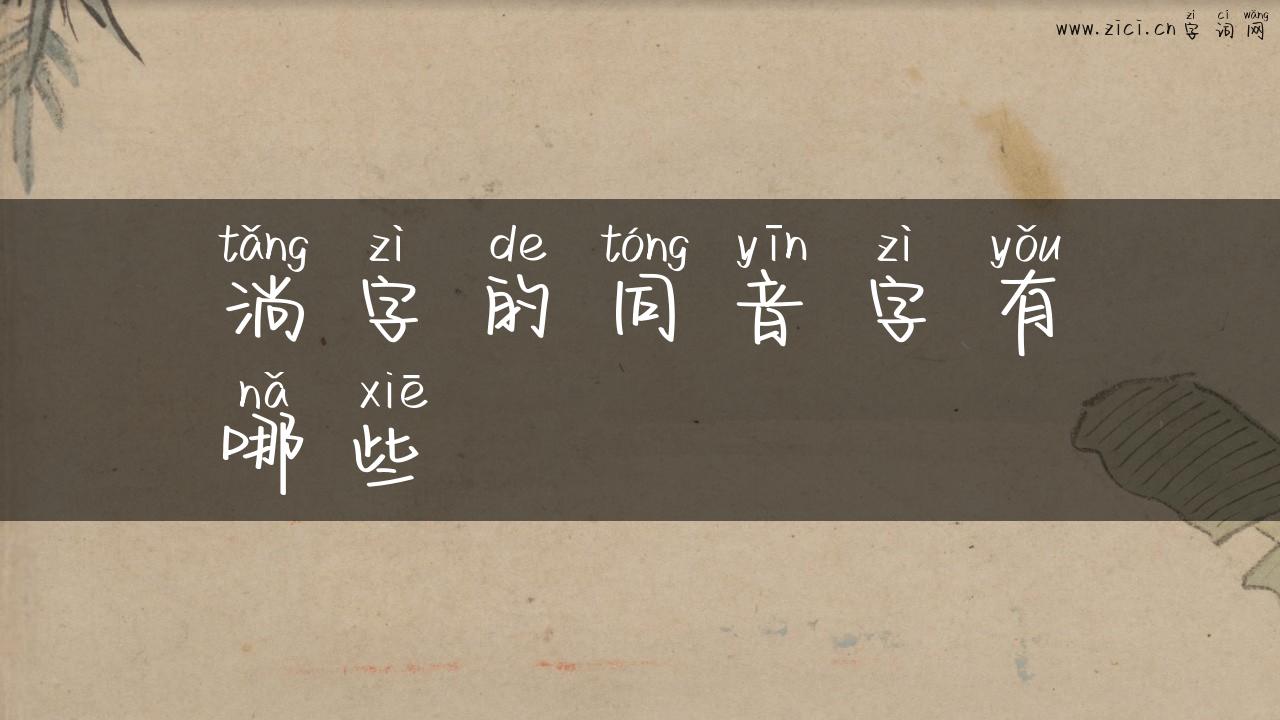 zì cí wǎng
www.zici.cn 字 词 网
tǎng zì de tóng yīn zì yǒu
淌 字 的 同 音 字 有
nǎ xiē
哪 些